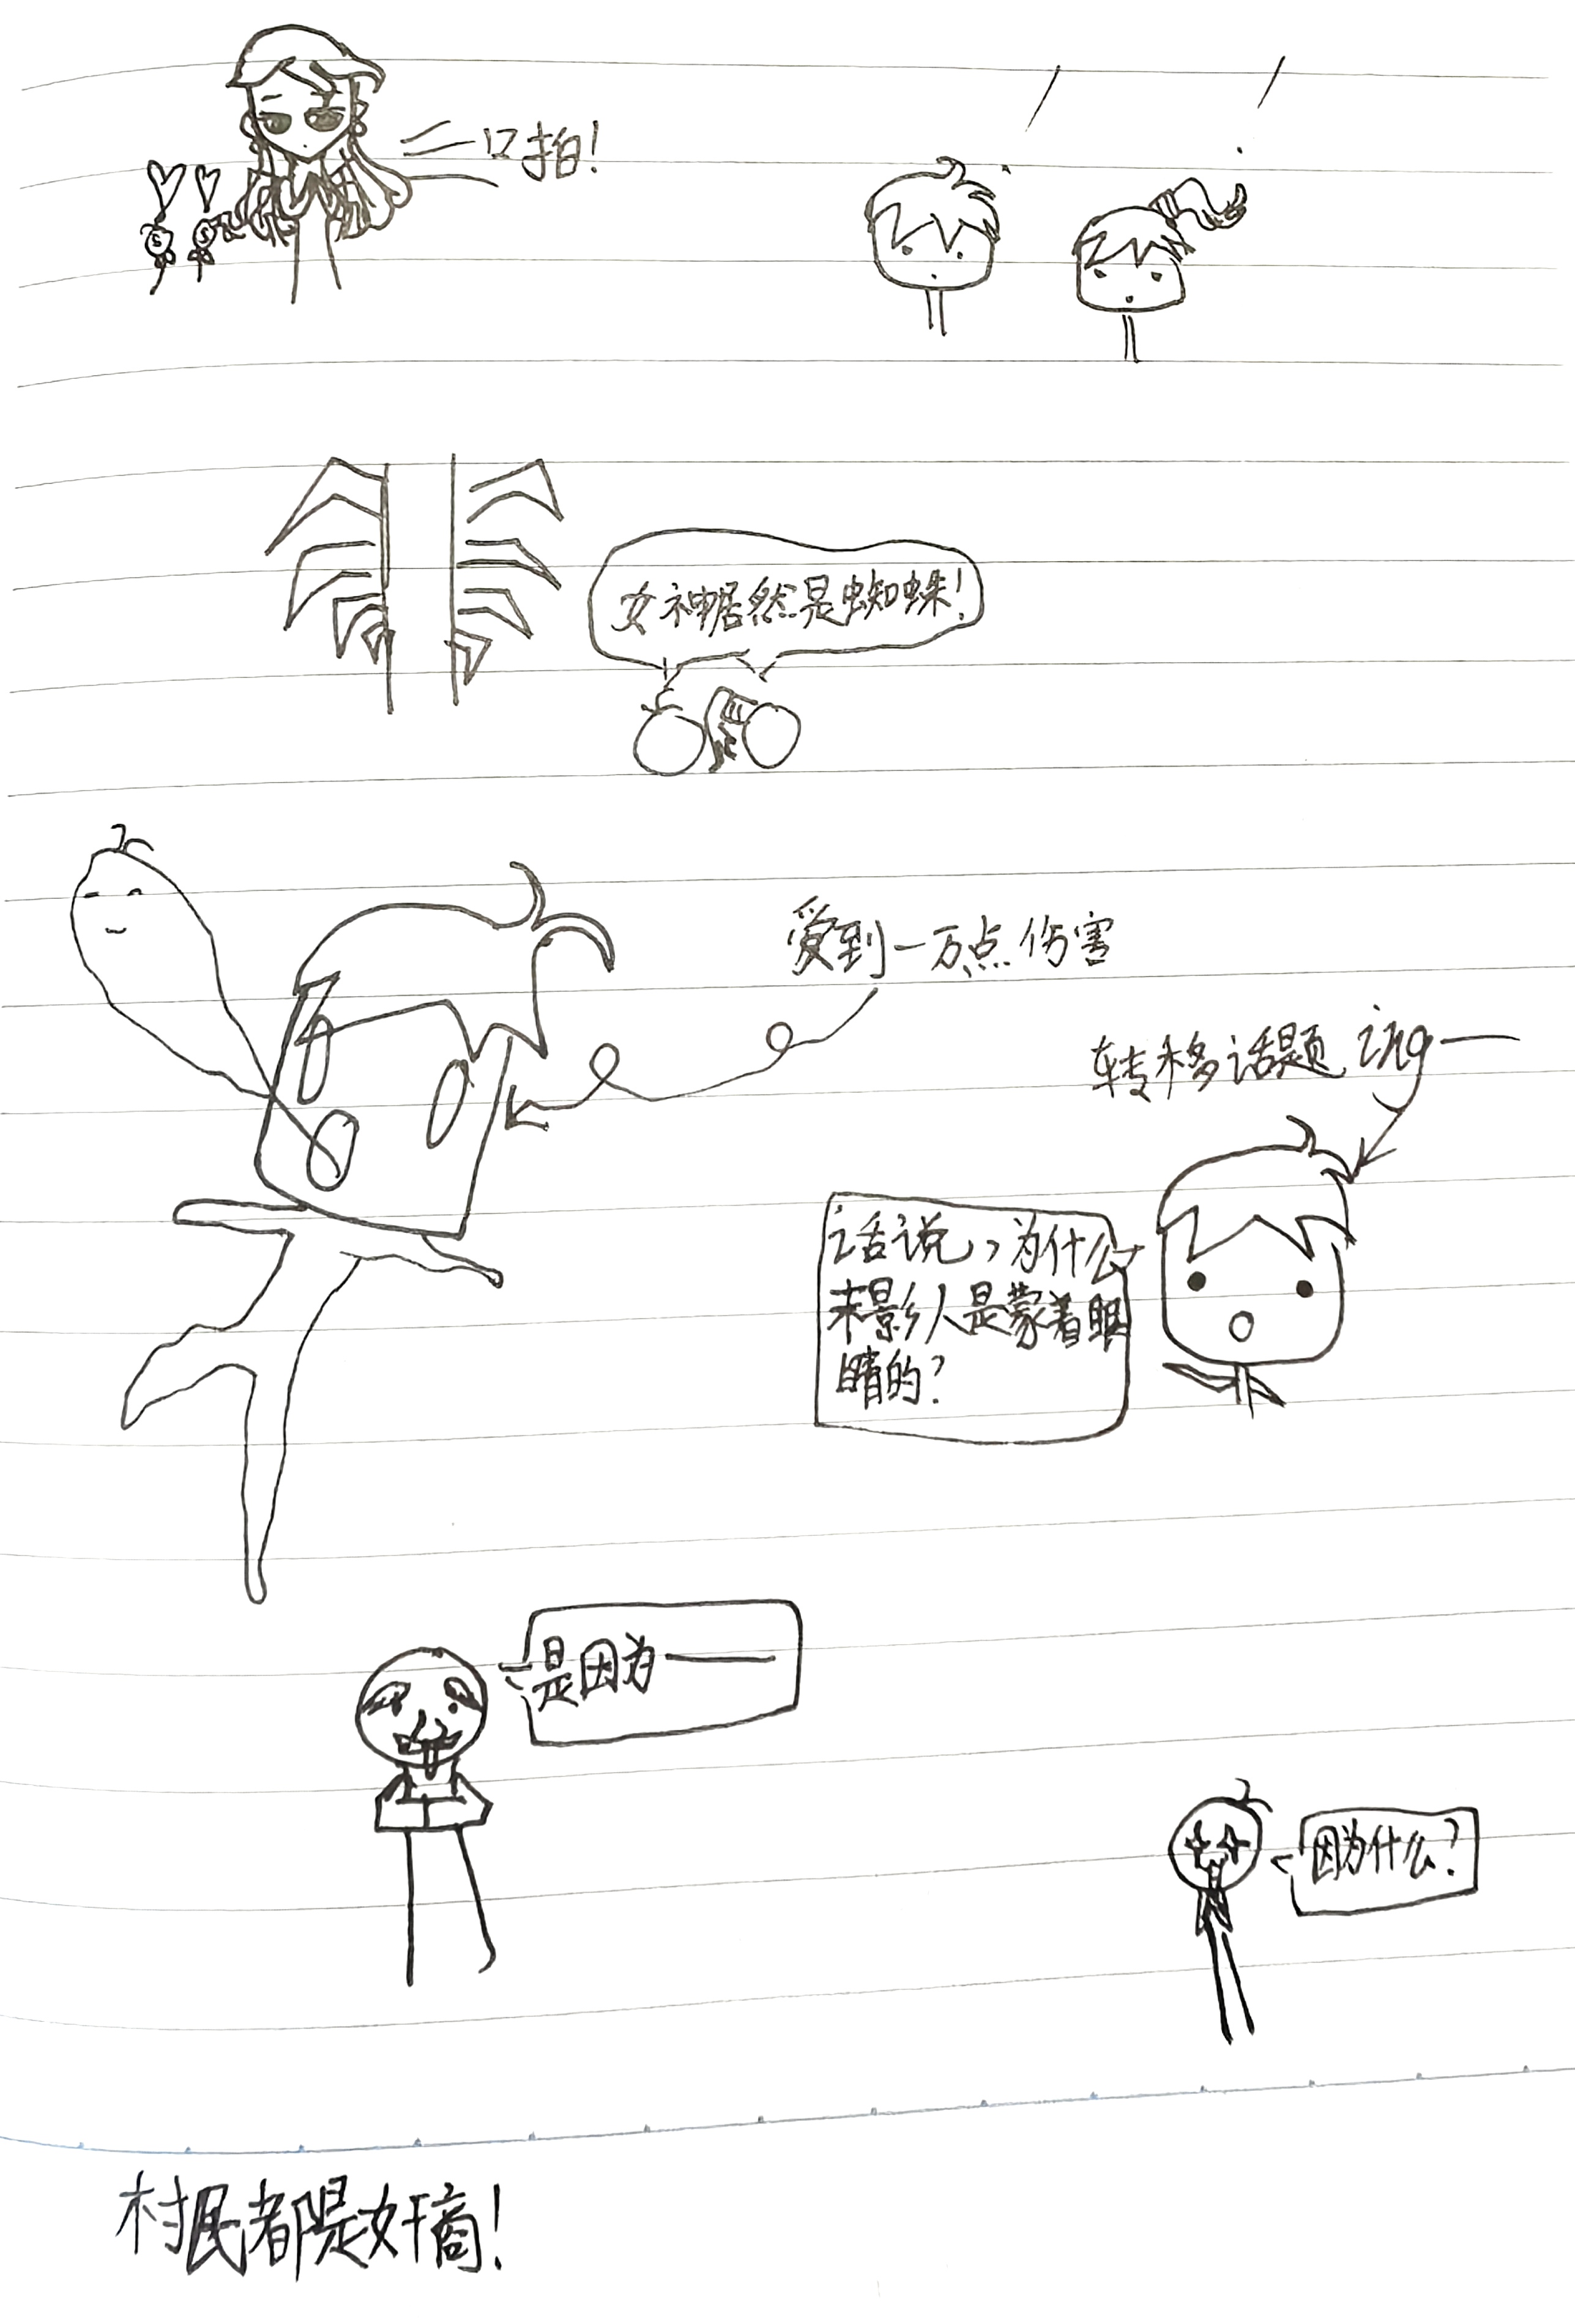 一口拍!
女神居然是蜘蛛!
受到一万点伤害
转移话题 ing——
话说,为什么
末影人是蒙着眼
睛的?
是因为——
因为什么?
村民都是奸商!